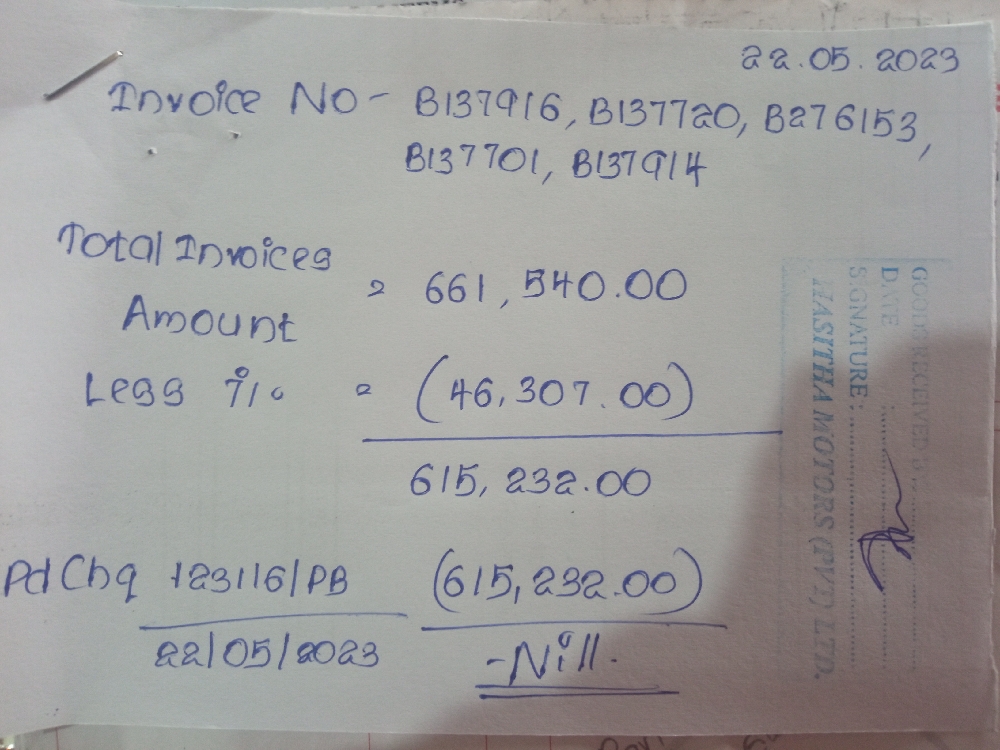 22.05.2023
Invoice NO - B137916, B137720, B276153,
B137701, B137914
Total Invoices
Amount = 661,540.00
Less 7% = (46,307.00)
615,232.00
Pd Chq 123116/PB (615,232.00)
22/05/2023 -Nill.
GOODS RECEIVED
DATE
SIGNATURE:
HASITHA MOTORS (PVT) LTD.